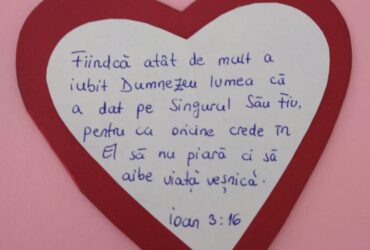 Fiindcă atât de mult a
iubit Dumnezeu lumea că
a dat pe Singurul Său Fiu,
pentru ca oricine crede în
El să nu piară ci să
aibe viață veșnică.
Ioan 3:16